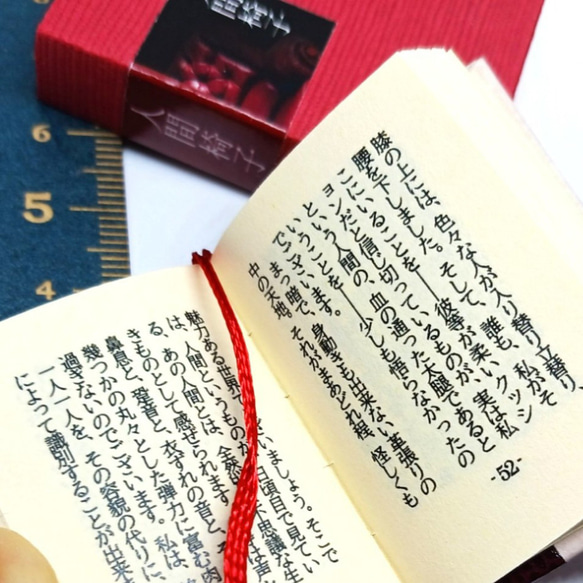 人間椅子
人間椅子
6
5
4
膝の上には、色々な人が入り替り立替り、
腰を下しました。そして、誰も、私がそ
こにいることを――彼等が柔いクッシ
ョンだと信じ切っているものが、実は私
という人間の、血の通った太腿であると
いうことを――少しも悟らなかったの
でございます。
まっ暗で、身動きも出来ない革張りの
中の天地。それがまあどれ程、怪しくも
-52-
魅力ある世界
は、人間というものが、
る、あの人間とは、全然
きものとして感ぜられます。
鼻息と、跫音と、衣ずれの音と、そ
幾つかの丸々とした弾力に富む肉
過ぎないのでございます。私は、
一人一人を、その容貌の代りに、
によって識別することが出来
いましょう。そこで